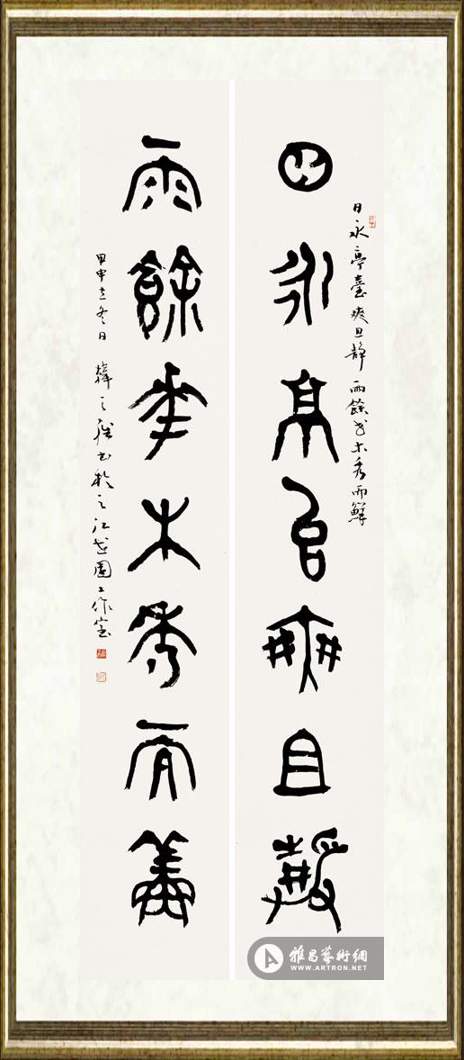 日永亭臺爽且靜
日永亭臺爽且静 雨餘花木秀而鮮
雨餘花木秀而鮮
甲申立冬日 韓天雍书於之江花園工作室
雅昌藝術網
WWW.ARTRON.NET